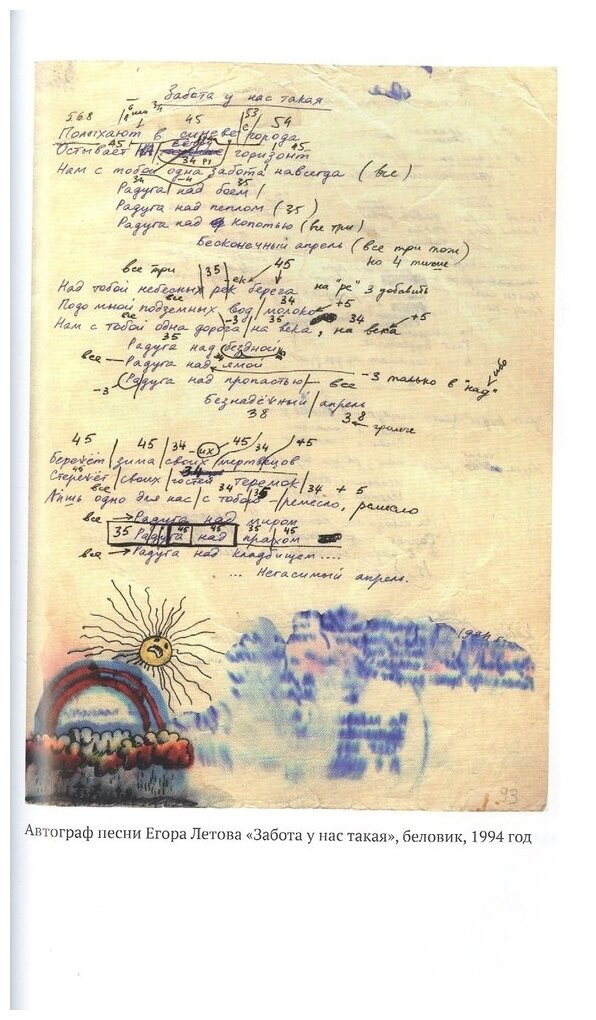 Забота у нас такая
568 45 53 54
Полыхают в синеве города
45 1° 45
Остывает НА горизонт
34
Нам с тобой одна забота навсегда (все)
34 -4 35
Радуга над боем
Радуга над пеплом (35)
Радуга над копотью (все три)
Бесконечный апрель (все три тож)
но 4 тише
все три 35 45
Над тобой небесных рек берега на "ре" 3 добавить
все 34 +5
Подо мной подземных вод молоко
все -3 35 34 +5
Нам с тобой одна дорога на века, на века
35
Радуга над бездной
все — Радуга над ямой -3 только в "над" ибо
-3 Радуга над пропастью — все
Безнадёжный апрель
38 38 громче
45 45 34 -их 45 34 +5
Бережёт зима своих мертвецов
45 34
Стережёт своих гостей теремок
все 34 35 34 + 5
Лишь одно для нас с тобою - ремесло, ремесло
все → Радуга над миром
35 45 45 35 45
Радуга над прахом
все → Радуга над кладбищем ....
... Негасимый апрель.
1994 г.
93
Автограф песни Егора Летова «Забота у нас такая», беловик, 1994 год